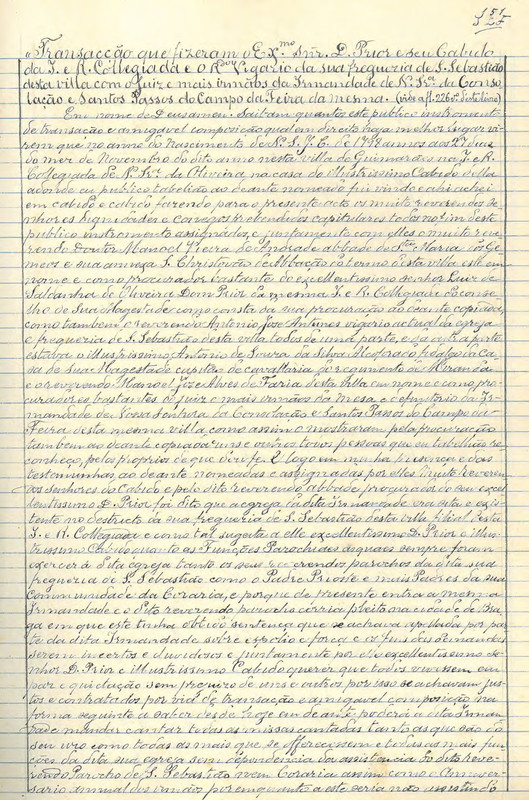 151
«Transacção que fizeram o Ex.mo Snr. D. Prior e seu Cabido
da I. e R. Collegiada e o R.do Vigario da sua freguezia de S. Sebastião
desta villa com o Juiz e mais irmãos da Irmandade de N. Sr.a da Conso-
lação e Santos Passos do Campo da Feira da mesma. (vide a fl. 226 v.
Em nome de Deus amen. Saibam quantos este publico instrumento
de transação e amigavel composição qual em direito haja melhor lugar vi-
rem que no anno do Nascimento de N. S. J. C. de annos aos dias
do mez de Novembro do dito anno nesta villa de Guimarães na I. e R.
Collegiada de N. Sr.a da Oliveira na casa do Illustrissimo Cabido della
adonde eu publico tabelião ao deante nomeado fui vindo e ahi achei
em cabido e cabido fazendo para o presente acto os muito reverendos se-
nhores dignidades e conegos prebendados capitulares todos no fim deste
publico instrumento assignados, e juntamente com elles o muito reve-
rendo Doutor Manoel Vieira de Andrade abbade de Sta. Maria de Ge-
meos e sua annexa S. Christovão de Abbação do termo desta villa este em
nome e como procurador bastante do excellentissimo senhor Luiz de
Saldanha de Oliveira Dom Prior da mesma I. e R. Collegiada do conse-
lho de Sua Magestade como consta da sua procuração ao deante copiada,
como tambem o reverendo Antonio Jose Antunes vigario actual da egreja
e freguezia de S. Sebastião desta villa todos de uma parte, e da outra parte
estava o illustrissimo Antonio de Souza da Silva Alcoforado fidalgo da ca-
sa de Sua Magestade capitão de cavallaria do regimento de Miranda
e o reverendo Manoel Jose Alves de Faria desta villa em nome e como pro-
curadores bastantes do Juiz e mais irmãos da Mesa e definitorio da Ir-
mandade de Nossa Senhora da Consolação e Santos Passos do Campo da
Feira desta mesma villa, como assim o mostraram pela procuração
tambem ao deante copiada uns e outros todos pessoas que eu tabelião re-
conheço pelos proprios de que dou fé. E logo em minha presença e das
testemunhas ao deante nomeadas e assignadas por elles muito reveren-
dos senhores do Cabido e pelo dito reverendo abbade procurador do seu excel-
lentissimo D. Prior foi dito que a egreja da dita Irmandade era sita e exis-
tente no destricto da sua freguezia de S. Sebastião desta villa filial desta
I. e R. Collegiada e como tal sugeita a elle excellentissimo D. Prior e illus-
trissimo Cabido quanto as Funções Parochiaes as quaes sempre foram
exercer á dita egreja tanto os seus reverendos parochos da dita sua
freguezia de S. Sebastião como o Padre Prioste e mais Padres da sua
communidade da Coraria, e porque de presente entre a mesma
Irmandade e o dito reverendo parocho corria pleito na cidade de Bra-
ga em que este tinha obtido sentença que se achava appellada por par-
te da dita Irmandade sobre espolio e força e os fins das demandas
serem incertos e duvidosos e juntamente por elle excellentissimo se-
nhor D. Prior e illustrissimo Cabido querer que todos vivessem em
paz e quietação sem prejuizo de uns e outros por isso se achavam jus-
tos e contratados por via de transação e amigavel composição na
forma seguinte a saber desde hoje em deante poderá a dita Irman-
dade mandar cantar todas as missas cantadas tanto as que são do
seu uso como todas as mais que se offerecerem e todas as mais fun-
ções da dita sua egreja sem dependencia da assistencia do dito reve-
rendo Parocho de S. Sebastião nem Coraria assim como o Anniver-
sario annual dos irmãos poremquanto a este seria não assistindo